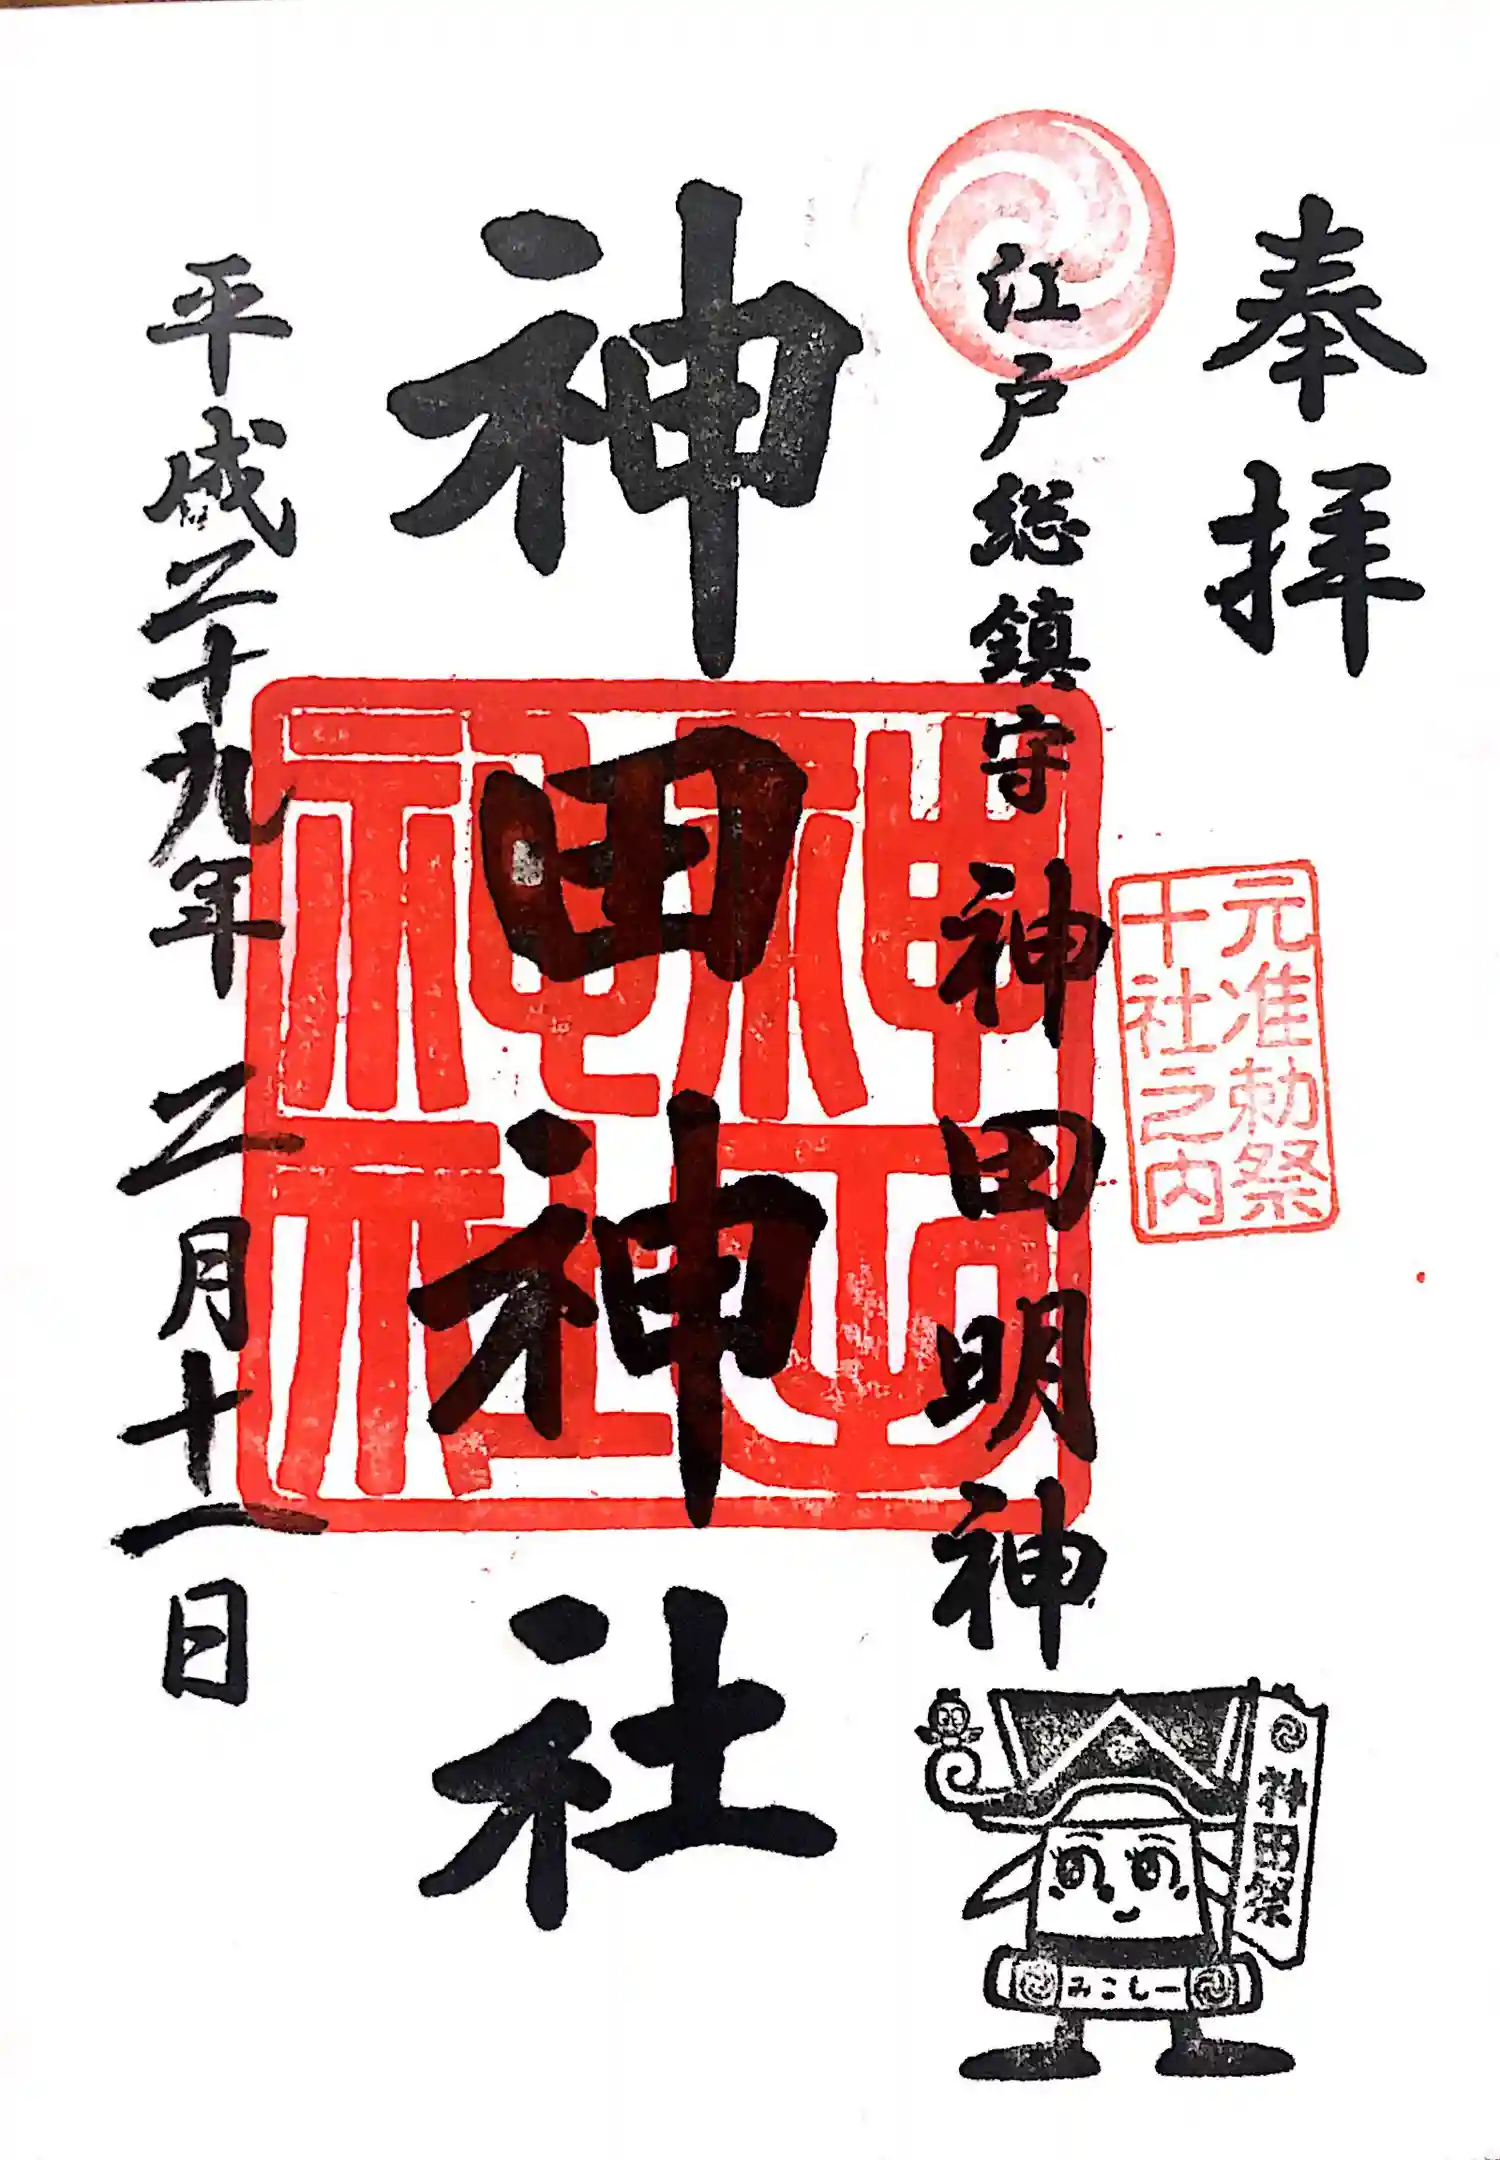 奉拝
元准勅祭
十社之内
江戸総鎮守神田明神
神田神社
神田神社
平成二十九年二月十一日
神田祭
みこしー